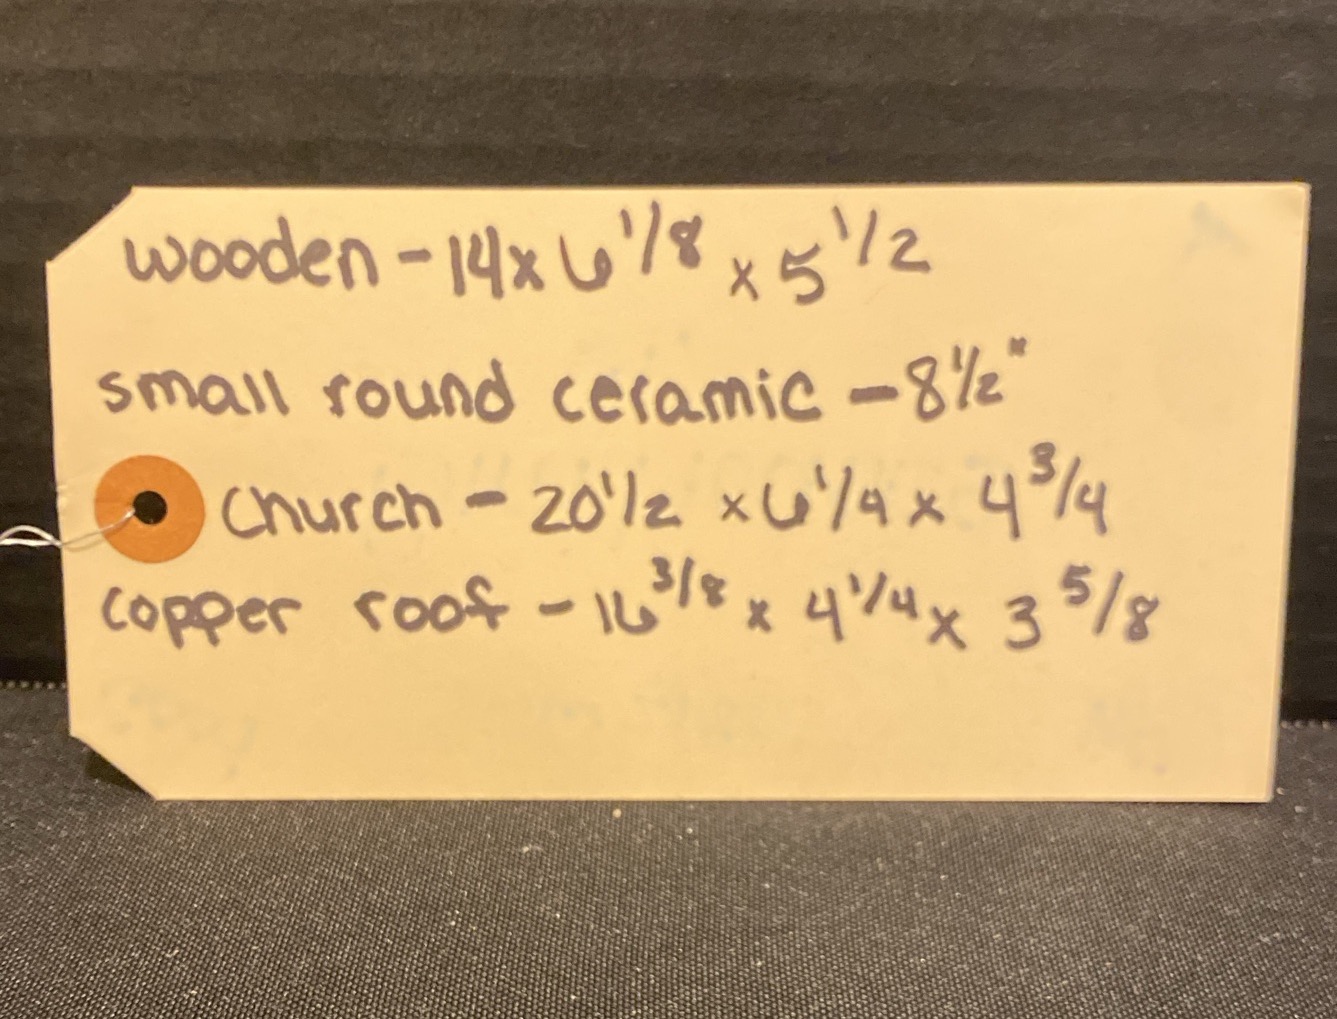 wooden - 14 x 6 1/8 x 5 1/2
small round ceramic - 8 1/2"
Church - 20 1/2 x 6 1/4 x 4 3/4
copper roof - 16 3/8 x 4 1/4 x 3 5/8